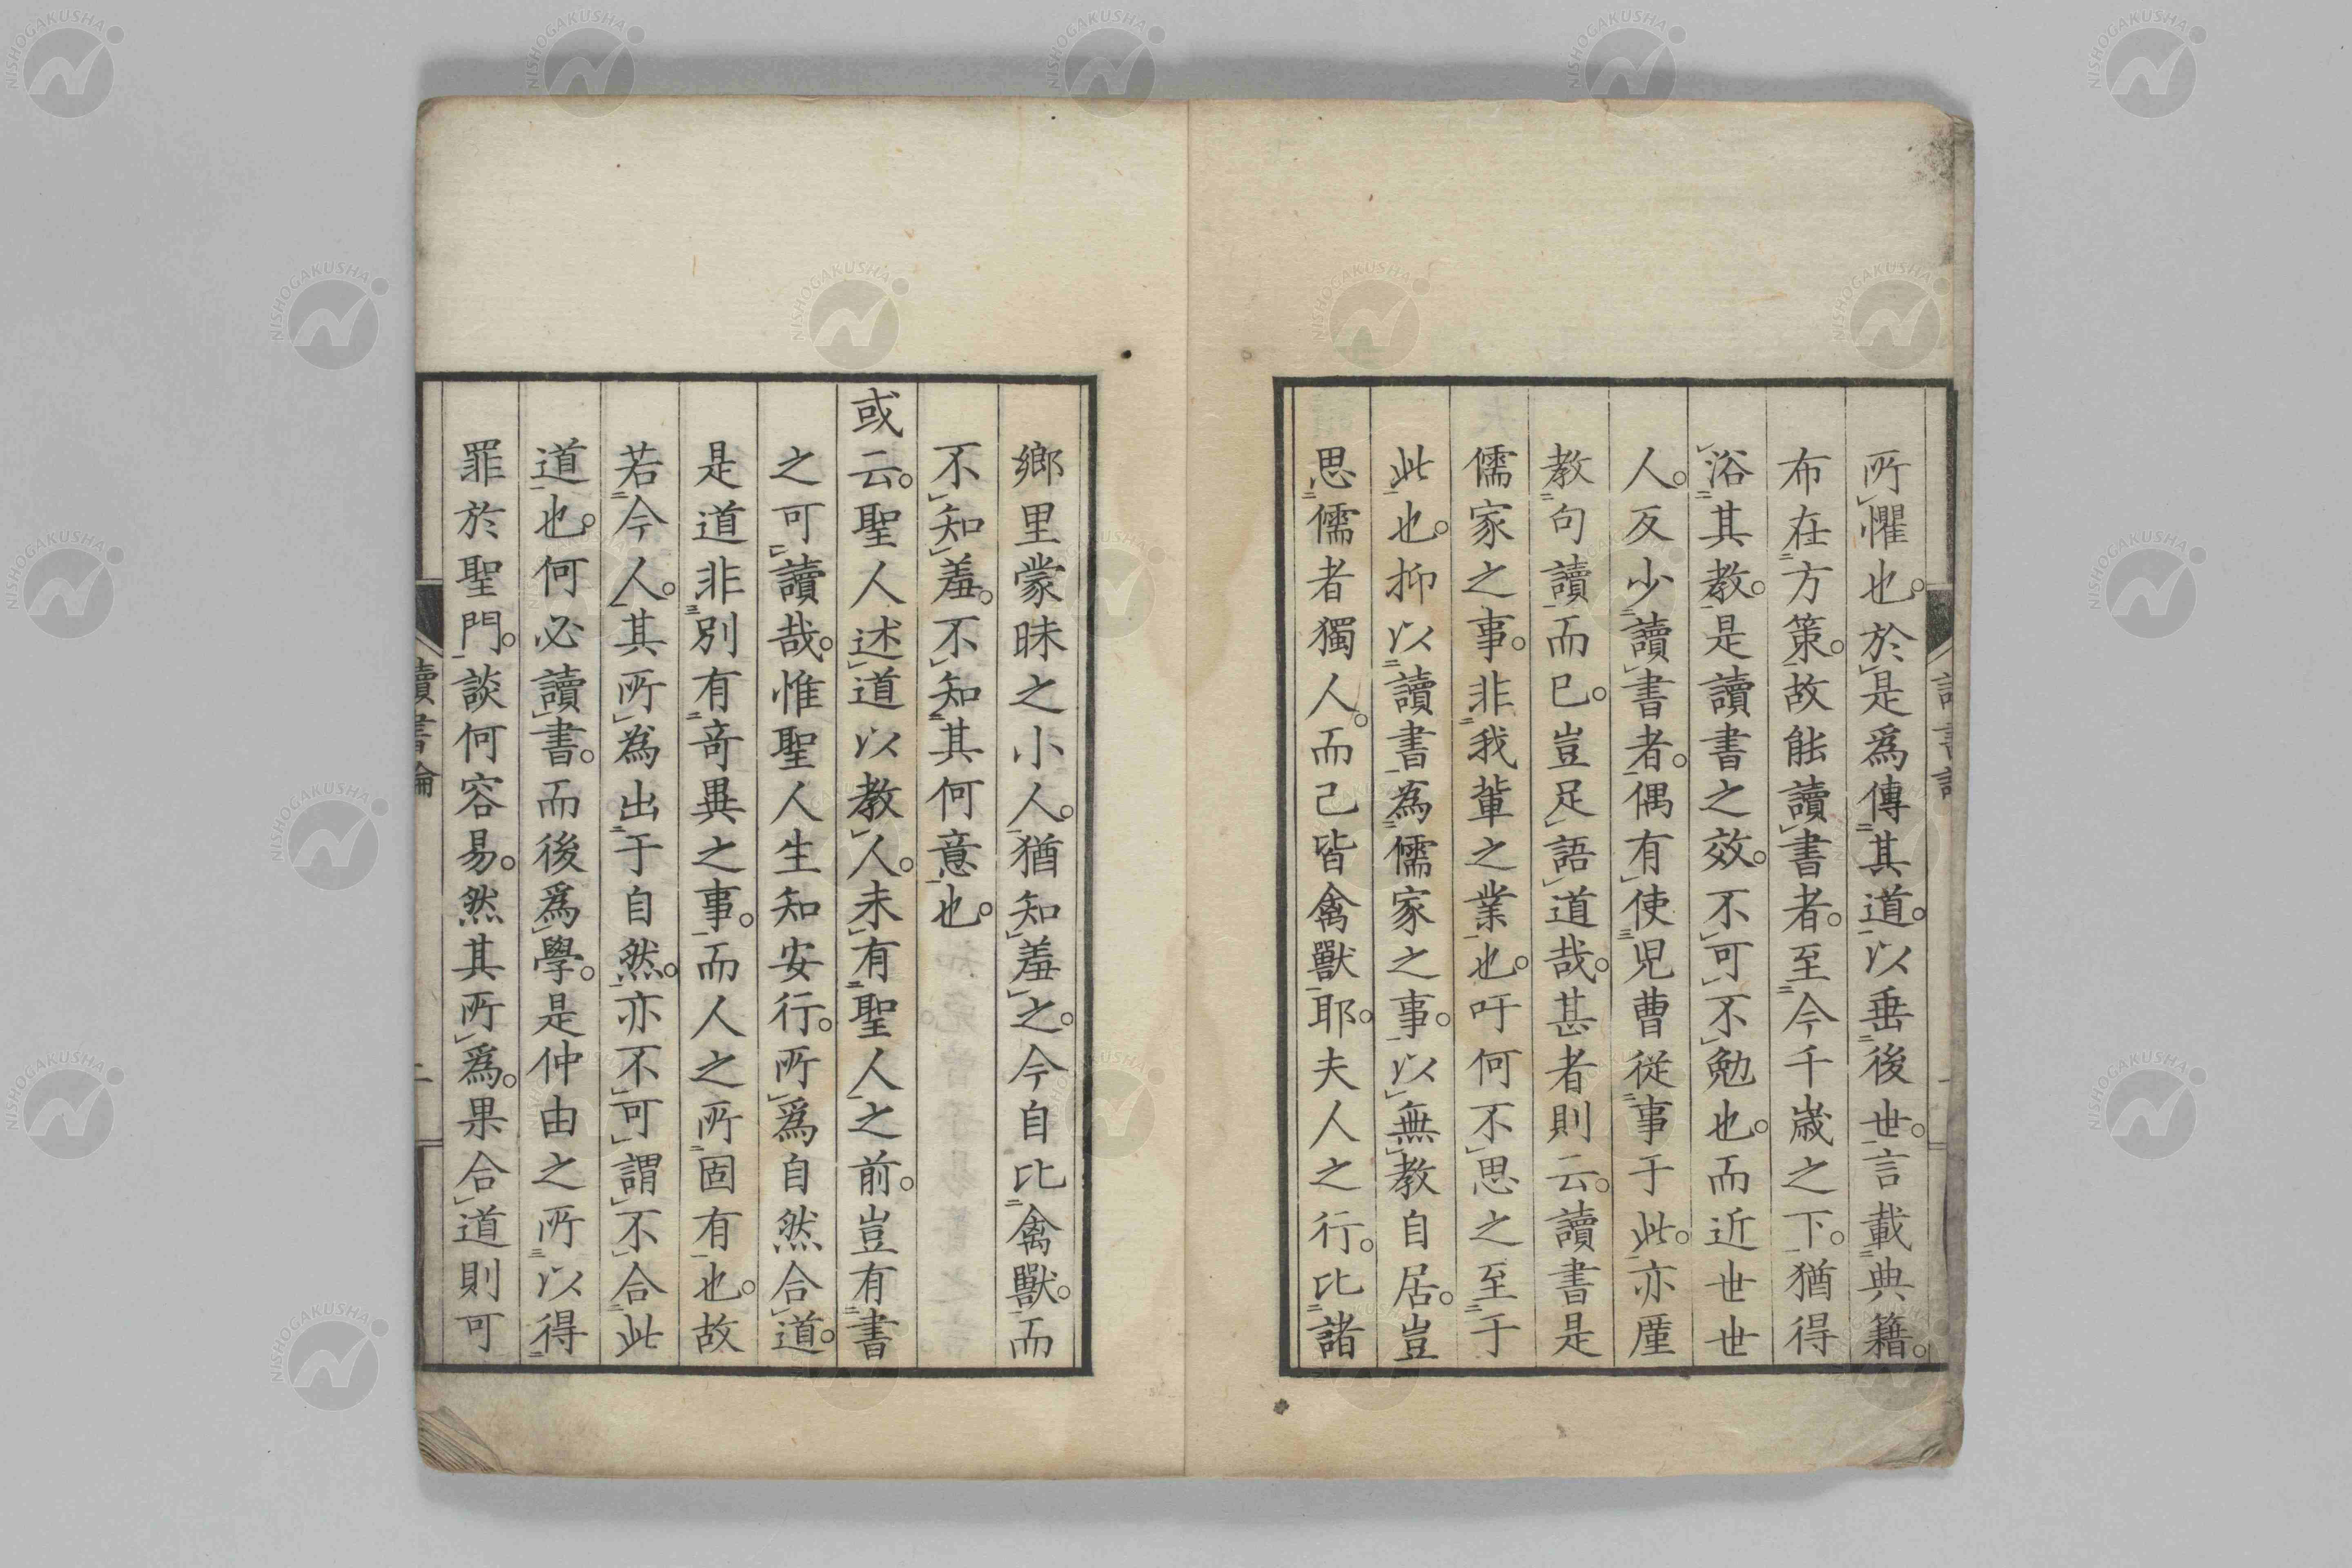 所懼也。於是爲傳其道。以垂後世。言載典籍。
布在方策。故能讀書者。至今千歳之下。猶得
浴其教。是讀書之效。不可不勉也。而近世世
人。反少讀書者。偶有使児曹從事于此。亦厪
教句讀而已。豈足語道哉。甚者則云。讀書是
儒家之事。非我輩之業也。吁何不思之至于
此也。抑以讀書為儒家之事。以無教自居。豈
思儒者獨人。而己皆禽獸耶。夫人之行。比諸
鄉里蒙昧之小人。猶知羞之。今自比禽獸。而
不知羞。不知其何意也。
或云。聖人述道以教人。未有聖人之前。豈有書
之可讀哉。惟聖人生知安行。所爲自然合道。
是道非別有竒異之事。而人之所固有也。故
若今人。其所為出于自然。亦不可謂不合此
道也。何必讀書。而後爲學。是仲由之所以得
罪於聖門。談何容易。然其所爲。果合道則可
讀書論
二
NISHOGAKUSHA